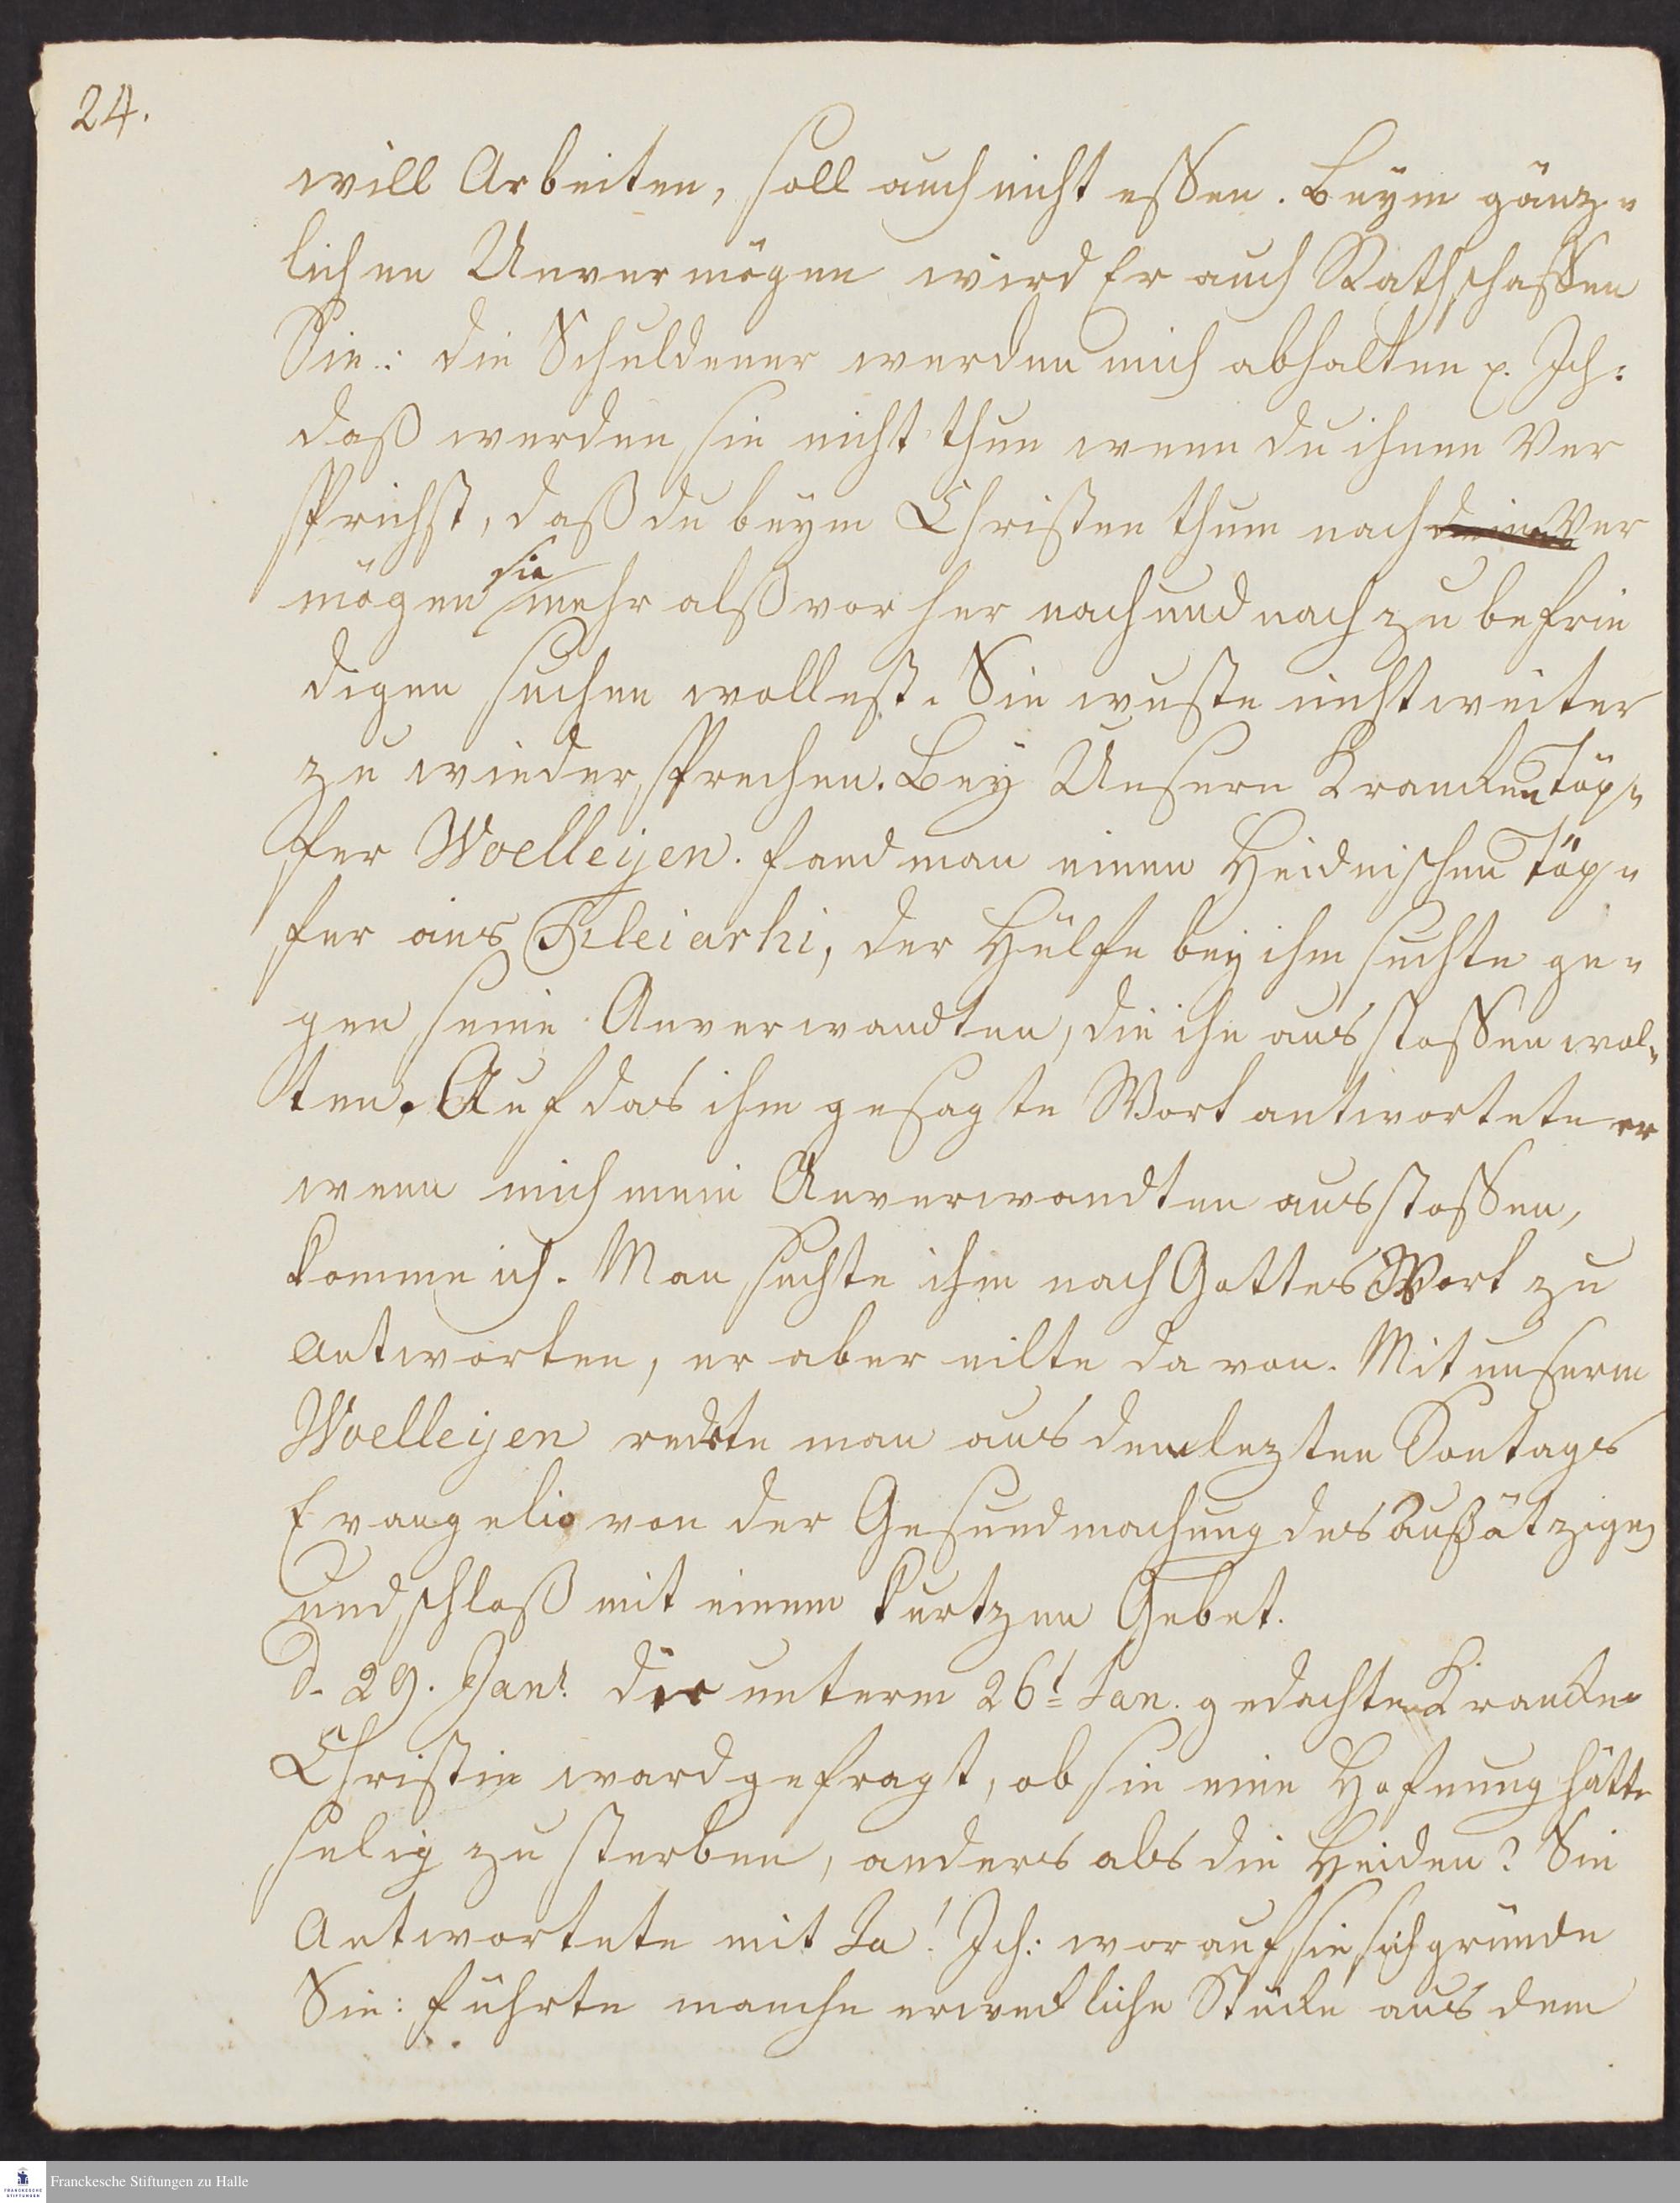 24.
will Arbeiten, soll auch nicht essen. Beym gänz-
lichen Unvermögen wird Er auch Rath schaffen
Sie: die Schuldener werden mich abhalten p. Ich:
daß werden sie nicht thun wenn du ihnen Ver
sprichst, daß du beym Christen thum nach Ver
mögen sie mehr alß vor her nach und nach zu befrie
digen suchen wollest. Sie wuste nicht weiter
zu wieder sprechen. Bey Unsern Krancken Töp-
fer Woelleyen. fand man einen Heidnischen Töp-
fer aus Tileiarhi, der Hülfe bey ihm suchte ge-
gen seine Anverwandten, die ihn aus stossen wol-
ten. Auf das ihm gesagte Wort antwortete er
wenn mich mein Anverwandten aus stossen,
komme ich. Man suchte ihm nach Gottes Wort zu
Antworten, er aber eilte da von. Mit unserm
Woelleyen redete man aus dem lezten Sontags
Evangelio von der Gesundmachung des Außätzigen
und schloß mit einem kurtzen Gebet.
d. 29. Janr. die unterm 26t Jan. gedachte Krancke
Christin ward gefragt, ob sie eine Hofnung hätte
selig zu sterben, anders als die Heiden? Sie
Antwortete mit Ja! Ich: worauf sie sich gründe
Sie: führte manche erweckliche Stücke aus dem
Franckesche Stiftungen zu Halle
FRANCKESCHE
STIFTUNGEN